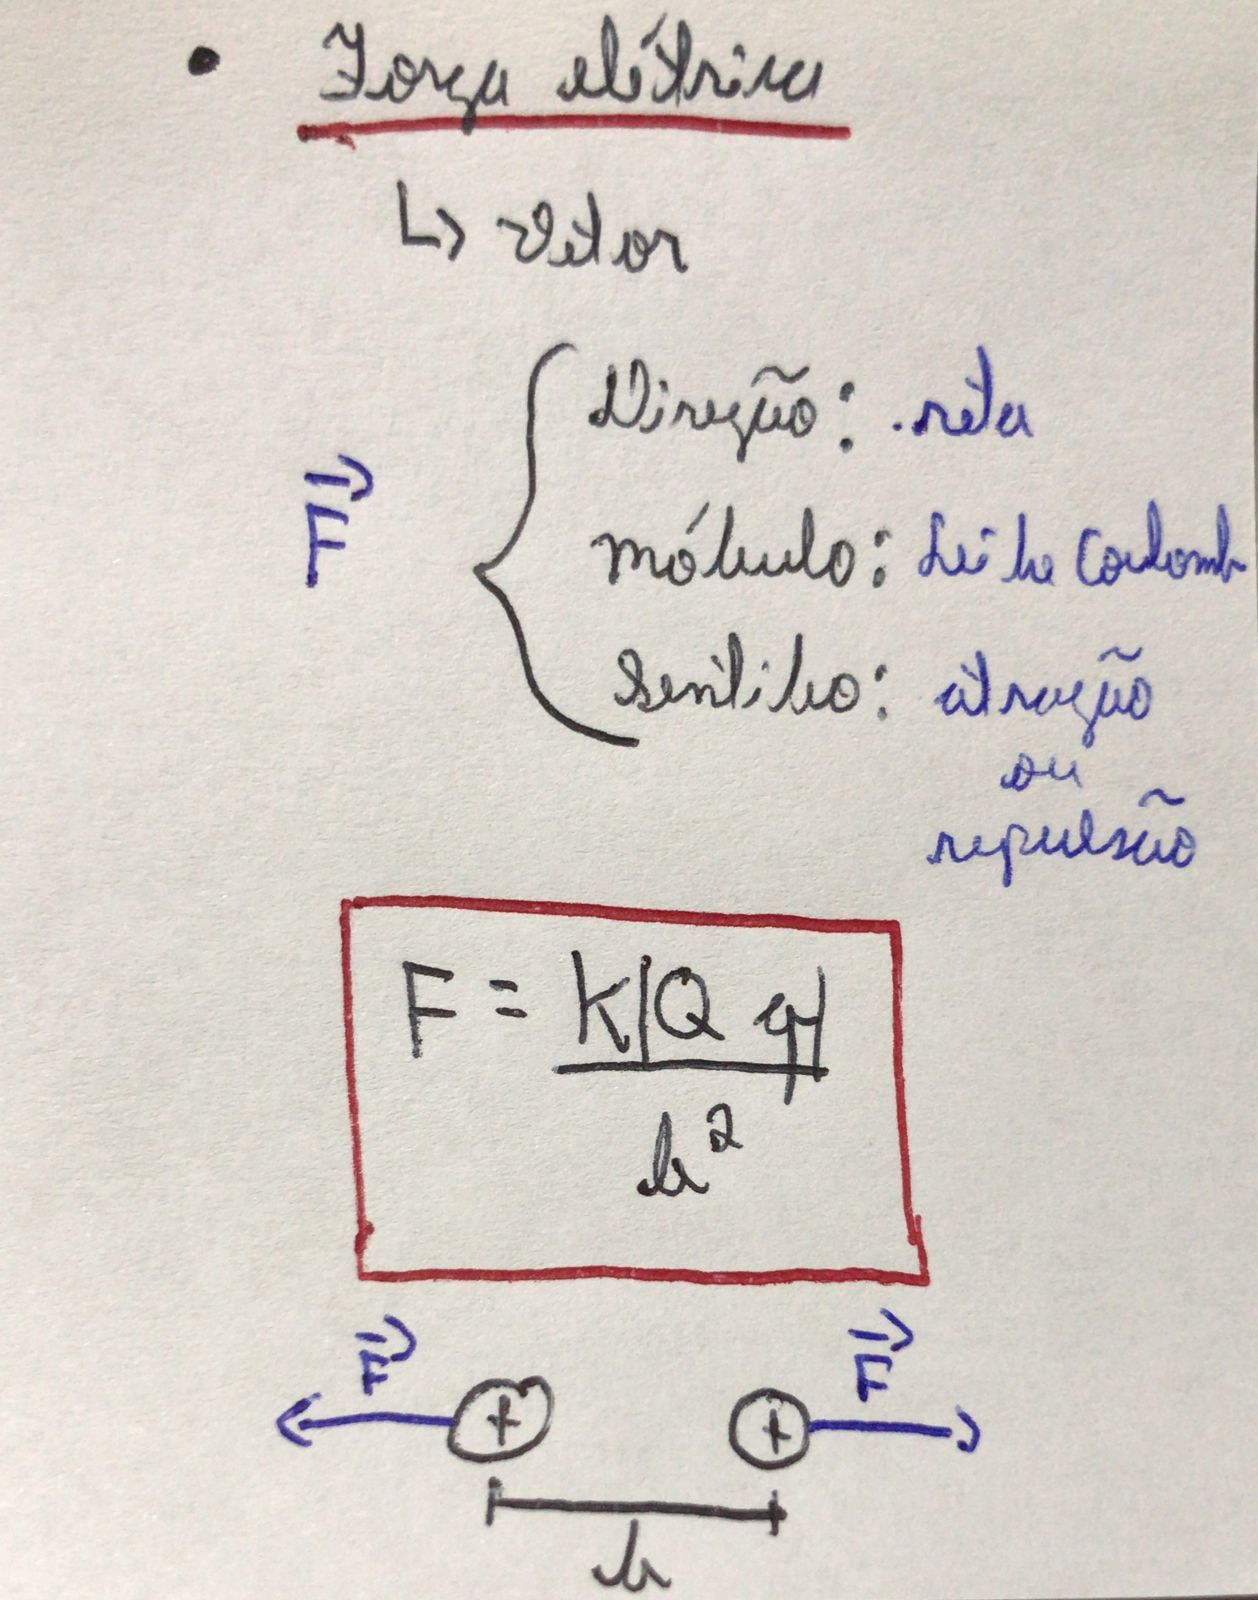 • Força elétrica
↳ Vetor
Direção: reta
F→
módulo: Lei de Coulomb
Sentido: atração
ou
repulsão
F = k|Q q|
d²
F→ F→
+ +
d